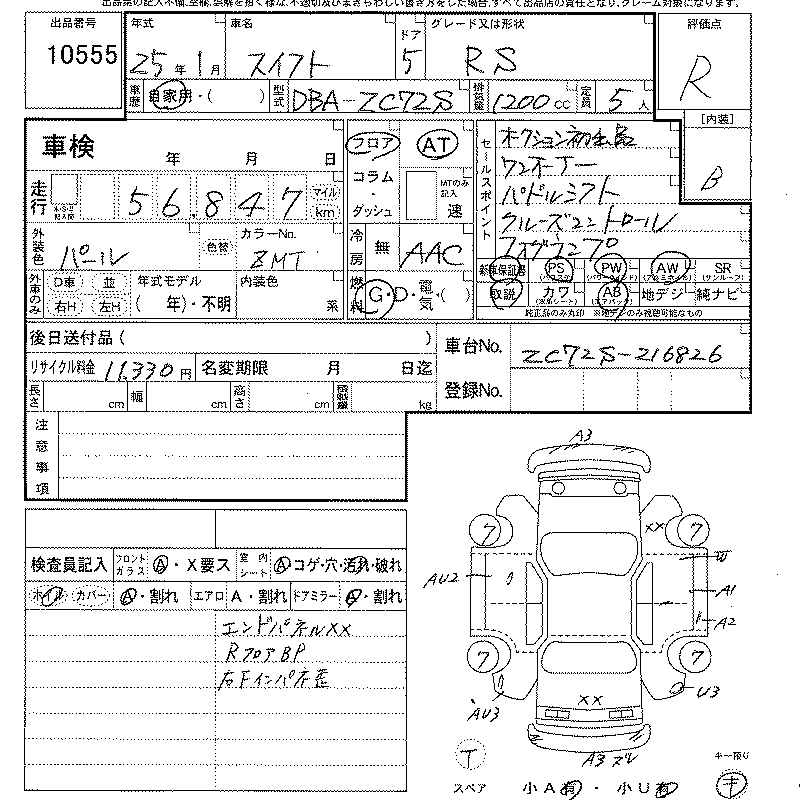 出品票の記入不備、空欄、誤解を招く様な、不適切及びまぎらわしい書き方をした場合、すべて出品店の責任となり、クレーム対象になります。
出品番号
10555
年式
25年1月
車名
スイフト
ドア
5
グレード又は形状
RS
評価点
R
車歴
自家用・( )
型式
DBA-ZC72S
排気量
1200cc
定員
5人
[内装]
B
車検
年 月 日
走行
56,847
マイル
km
フロア
AT
コラム・ダッシュ
MTのみ記入
速
セールスポイント
ワンオーナー
パドルシフト
クルーズコントロール
フォグランプ
外装色
パール
色替
カラーNo.
ZMT
冷房
無
AAC
新車保証書
PS
(パワステ)
PW
(パワーウィンド)
AW
(アルミホイル)
SR
(サンルーフ)
外車のみ
D車
並
右H
左H
年式モデル
( 年)・不明
内装色
系
燃料
G・D・電気・( )
取説
カワ
(本革シート)
AB
(エアバッグ)
地デジ
純ナビ
純正品のみ丸印 ※地デジのみ視聴可能なもの
後日送付品( )
車台No.
ZC72S-216826
リサイクル料金
11,330円
名変期限 月 日迄
登録No.
長さ cm
幅 cm
高さ cm
積載量 kg
注意事項
検査員記入
フロントガラス
A・X要ス
室内シート
A コゲ・穴・汚れ・破れ
ホイル カバー
A・割れ
エアロ
A・割れ
ドアミラー
A・割れ
エンドパネルXX
RフロアBP
A3
7
XX
7
W
AU2
A1
A2
7
7
U3
AU3
XX
A3
T
スペア
小A有・小U有
キー預り
キ